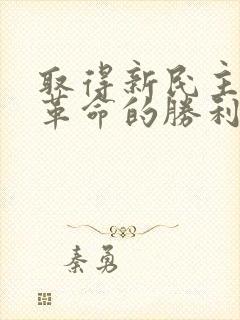 取得新民主
革命的勝利
秦勇